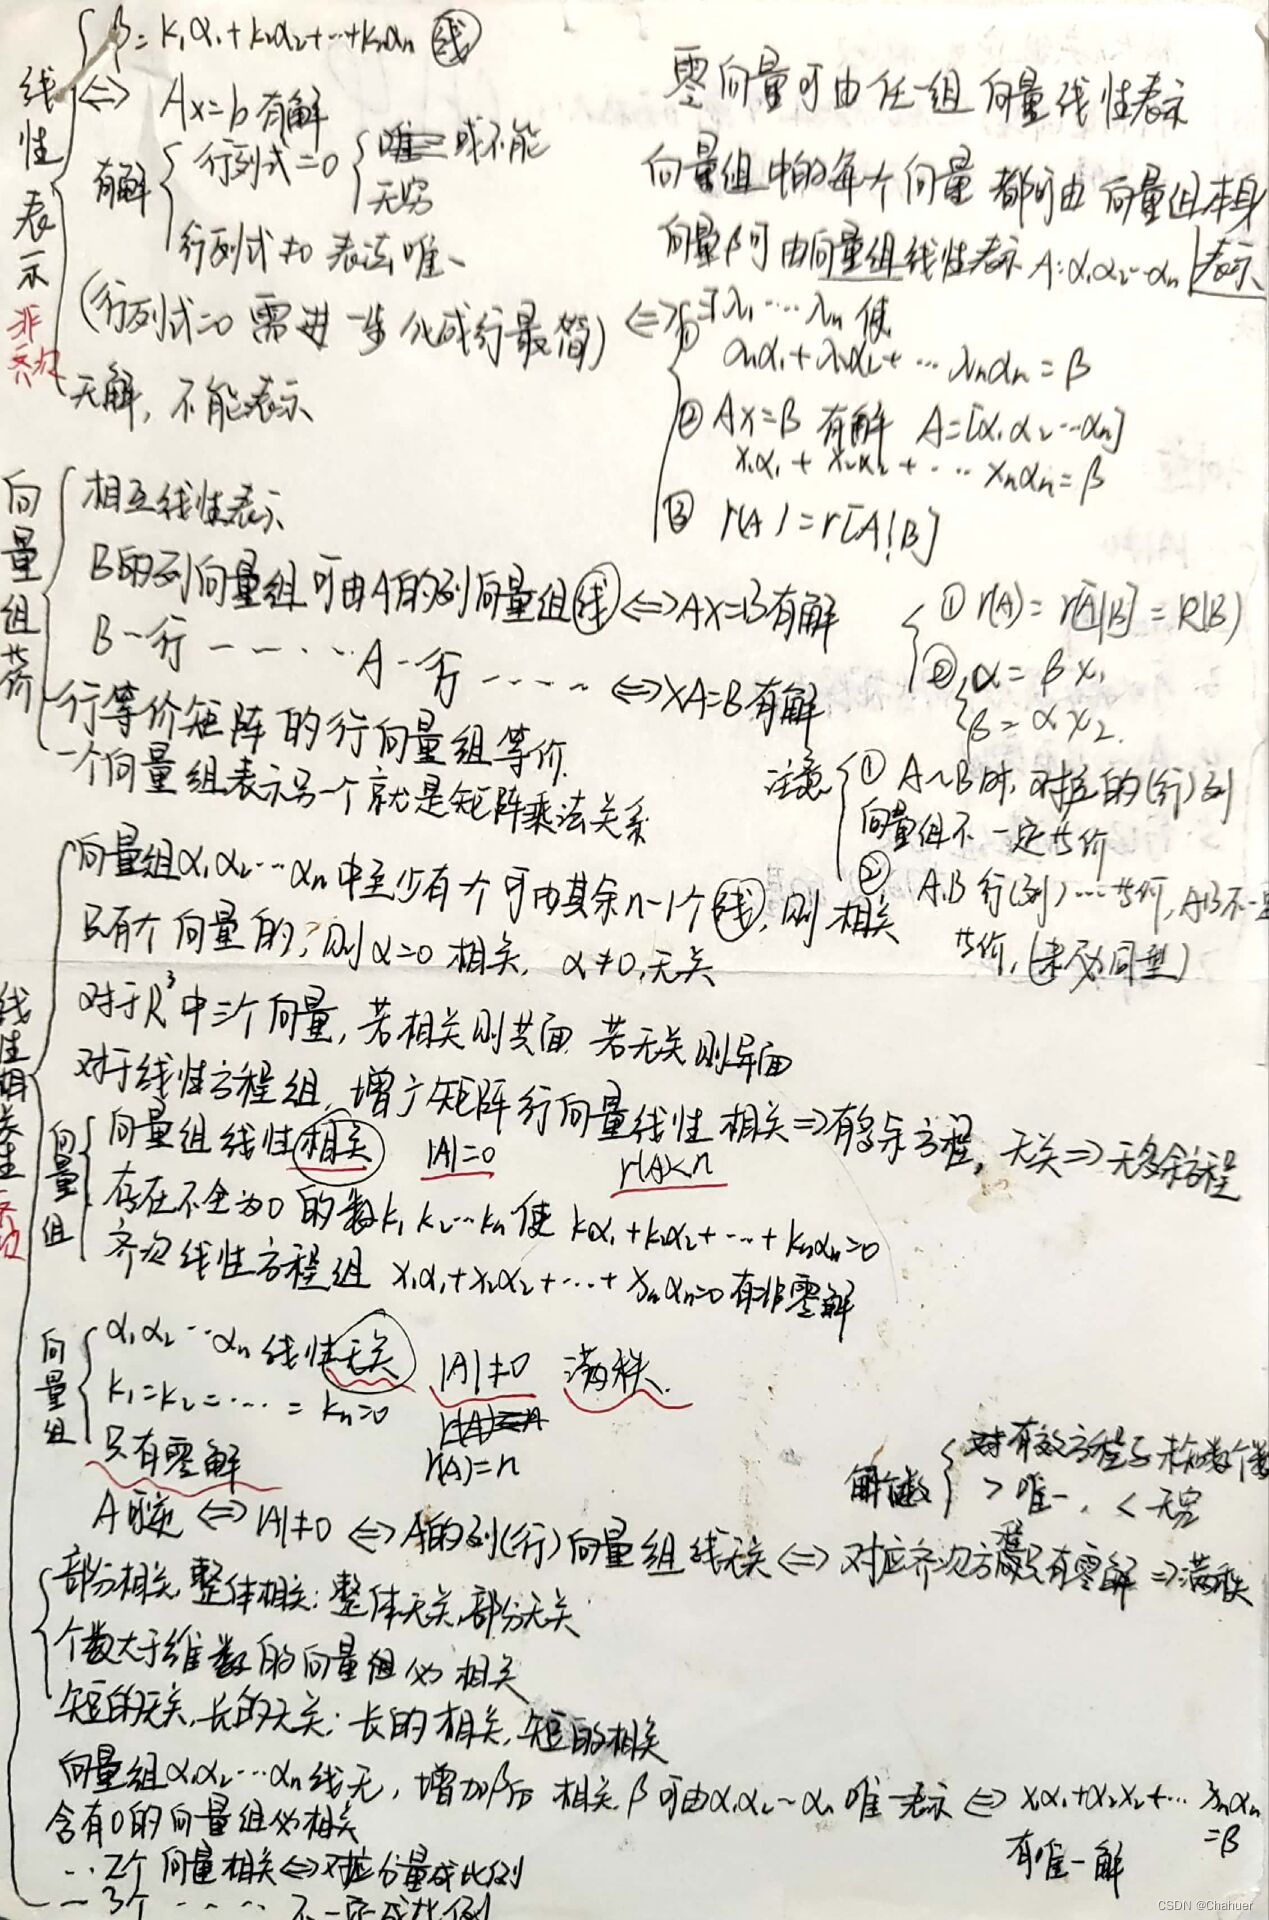 线性表示 非齐次
β=k₁α₁+k₂α₂+…+knαn 线
⇔ Ax=b有解
有解 行列式=0 唯一或不能
无穷
行列式≠0 表法唯一
(行列式=0 需进一步化成行最简)
无解,不能表示
零向量可由任一组向量线性表示
向量组中的每个向量都可由向量组本身表示
向量β可由向量组线性表示 A:α₁α₂…αn
⇔ ① ∃λ₁…λn使
λ₁α₁+λ₂α₂+…λnαn=β
② Ax=β 有解 A=[α₁α₂…αn]
x₁α₁+x₂α₂+…xnαn=β
③ r(A)=r[A|B]
向量组等价
相互线性表示
B的列向量组可由A的列向量组线⇔AX=B有解
B一行——…A一行……⇔XA=B有解
行等价矩阵的行向量组等价.
一个向量组表示另一个就是矩阵乘法关系
① r(A)=r[A|B]=R(B)
② α=βx₁
β=αx₂.
注意 ① A~B时,对应的(行)列
向量组不一定等价
② A.B行(列)…等价,AB不一定
等价,(未必同型)
线性相关性 齐次
向量组α₁α₂…αn中至少有一个可由其余n-1个线,则相关
只有个向量的,则α=0相关,α≠0,无关
对于R³中三个向量,若相关则共面 若无关则异面
对于线性方程组,增广矩阵行向量线性相关⇒有多余方程,无关⇒无多余方程
向量组
向量组线性相关 |A|=0 r(A)<n
存在不全为0的数k₁k₂…kn使k₁α₁+k₂α₂+…+knαn=0
齐次线性方程组 x₁α₁+x₂α₂+…+xnαn=0有非零解
向量组
α₁α₂…αn线性无关 |A|≠0 满秩.
k₁=k₂=…=kn=0
r(A)=n
只有零解
解个数 对有效方程与未知数个数
>唯一,<无穷
A可逆⇔|A|≠0⇔A的列(行)向量组线无关⇔对应齐次方程只有零解⇒满秩
部分相关,整体相关;整体无关,部分无关
个数大于维数的向量组必相关
短的无关,长的无关;长的相关,短的相关
向量组α₁α₂…αn线无,增加β后相关.β可由α₁α₂…αn唯一表示⇔x₁α₁+α₂x₂+…xnαn
=β
有唯一解
含有0的向量组必相关
..2个向量相关⇔对应分量成比例
一3个…… 不一定成比例
CSDN @Chahuer